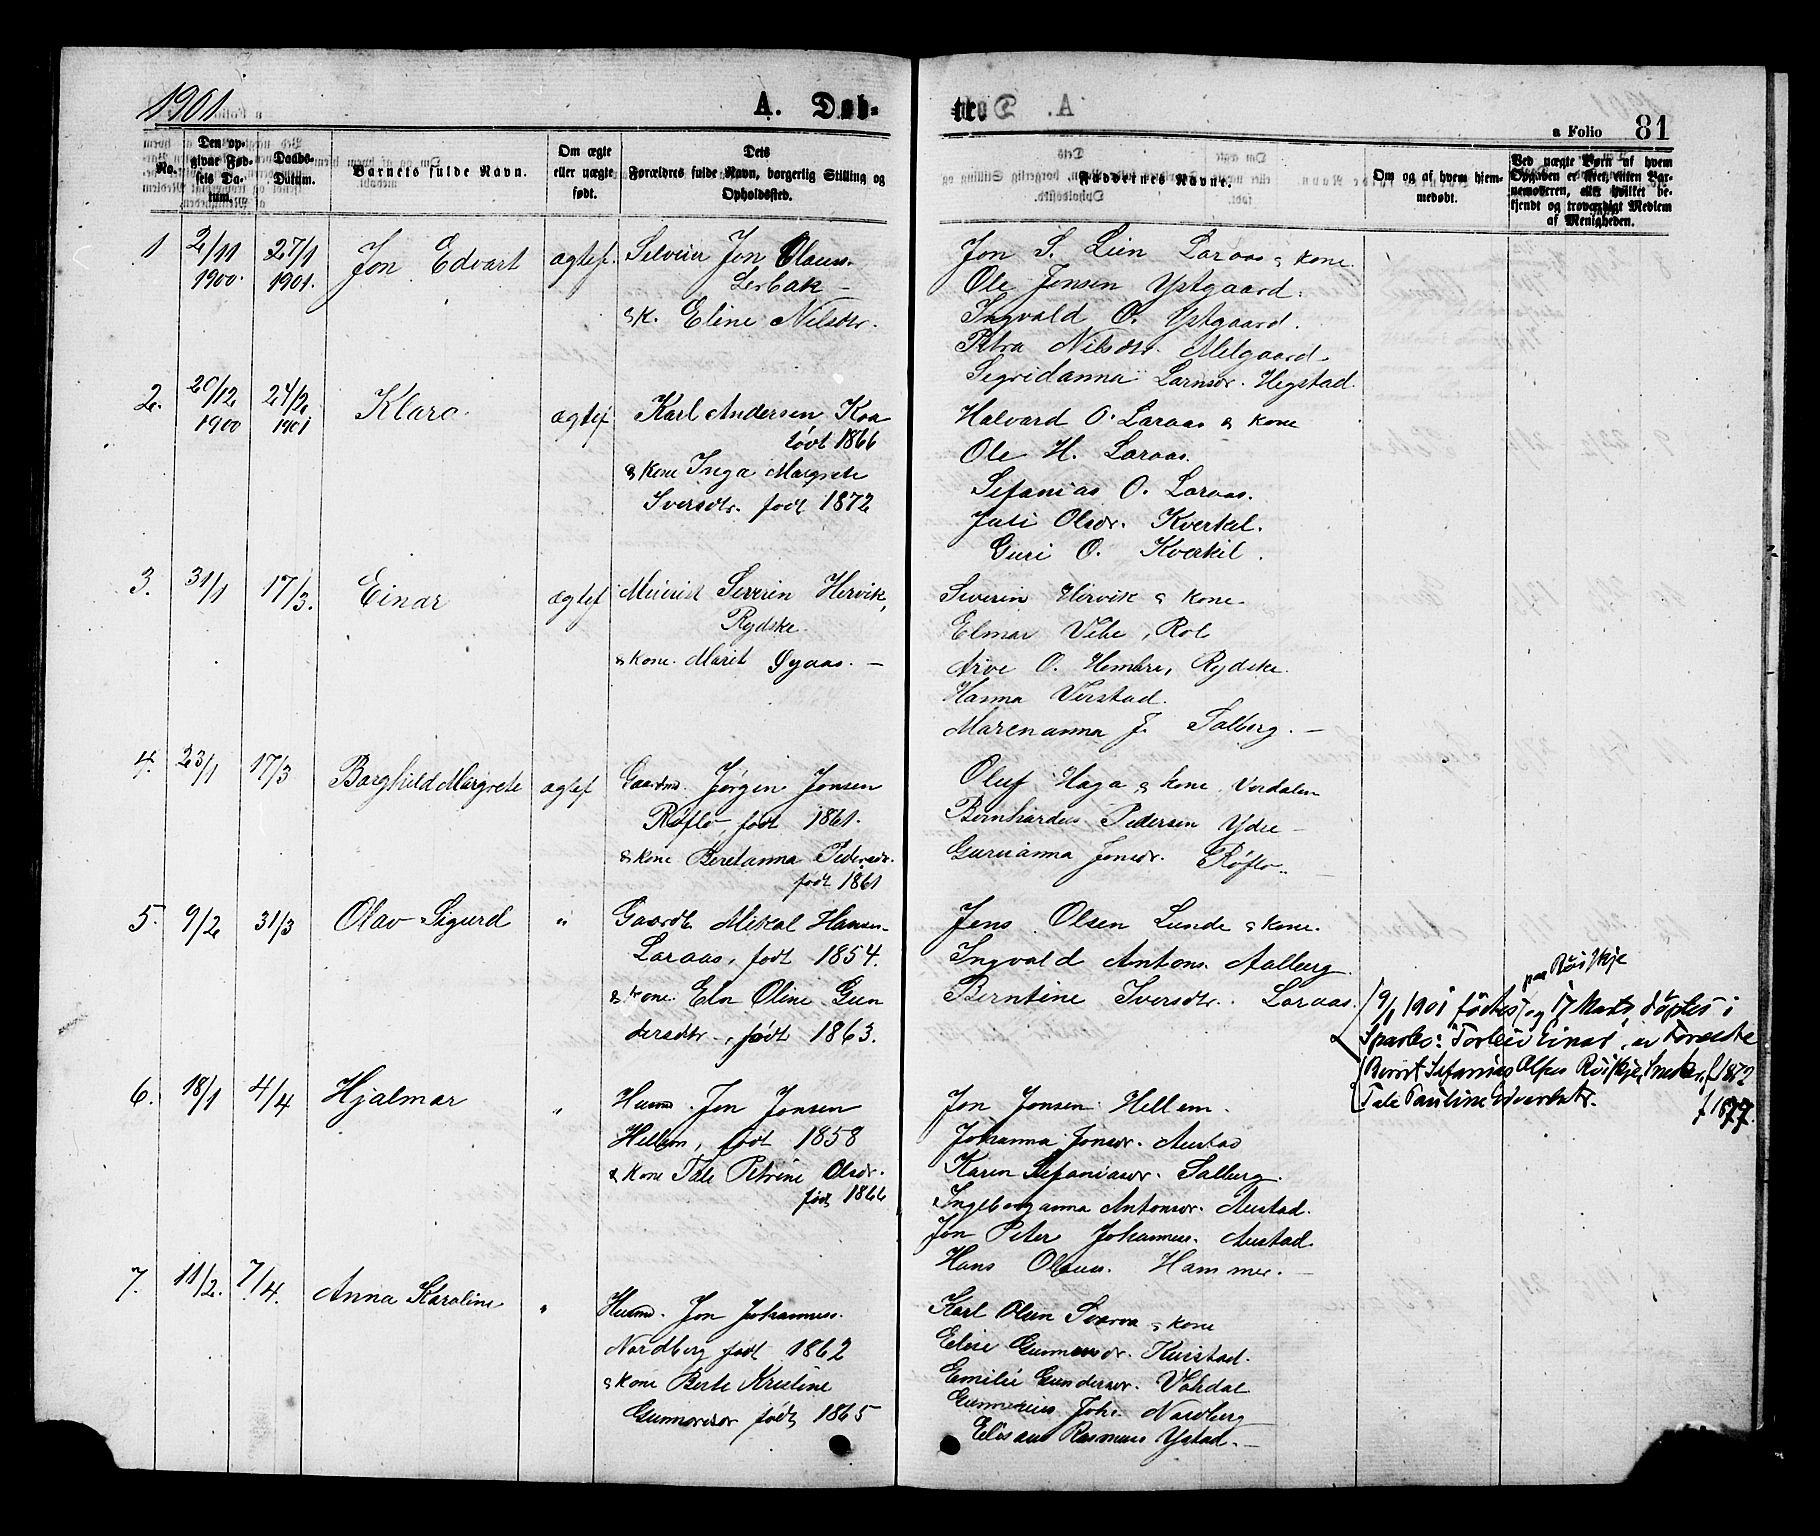 1901.
A. Døb-
te.
a Folio 81
No.
Den op-
givne Fød-
sels Da-
tum.
Daabs-
Datum.
Barnets fulde Navn.
Om ægte
eller uægte
født.
Dets
Forældres fulde Navn, borgerlig Stilling og
Opholdssted.
Faddernes Navne.
Om og af hvem hjem-
medøbt.
Ved uægte Børn af hvem
Opgaven er sket, enten Bar-
nemoderen, eller hvilket be-
kjendt og troværdigt Medlem
af Menigheden.
1 2/11 1900. 27/1 1901. Jon Edvart ægtef. Selveier Jon Olaus.
Lerbak –
& K. Eline Nilsdtr.
Jon S. Lein Laraas & kone.
Ole Jonsen Ystgaard.
Ingvald O. Ystgaard.
Petra Nilsdtr. Melgaard.
Sigridanna Larnsdr. Hegstad.
2. 20/12 1900 24/2 1901 Klara. ægtef Karl Andersen Kaa
født 1866
& Kone Inga Margrete
Iversdtr. født 1872
Halvard O. Laraas & kone
Ole H. Laraas.
Sefanias O. Laraas.
Juli Olsdr. Kverkil.
Guri O. Kverkil.
3. 31/1 17/3. Einar ægtef Meierist Severin Hervik,
Rydske.
& Kone. Marit Øyaas. –
Severin Hervik & kone.
Elmar Vibe, Rol
Arve O. Hembre, Rydske.
Hanna Verstad.
Marenanna J. Salberg. –
4. 23/1 17/3 Borghild Margrete ægtef Gaardmd. Jørgen Jonsen
Røflo, født 1861.
& Kone Beretanna Pedersdr.
født 1861
Oluf Haga & kone, Verdalen
Bernhardus Pedersen Ydse –
Gurianna Jonsdr. Røflo..
5. 9/2 31/3 Olav Sigurd " Gaardt. Mikal Hansen
Laraas, født 1854.
& Kone. Eln Oline Gun
dersdtr., født 1863.
Jens Olsen Lunde & kone.
Ingvald Antons. Aalberg.
Berntine Iversdtr. Laraas.
paa Røiskje
9/1 1901 fødtes og 17 Marts døptes i
Sparbo: Torleiv Einar, av Forældre
Bernt Sefanias Olsen Røiskje, Snekker, f 1872
Tale Pauline Edvardsdtr.
f 1877
6. 18/1 4/4 Hjalmar " Husmd. Jon Jonsen
Hellem, født 1858
& Kone Tale Petrine Olsdr.
født 1866
Jon Jonsen Hellem.
Johanna Jonsdr. Austad
Karen Sefaniasdr. Salberg.
Ingeborganna Antonsdr. Austad.
Jon Peter Johannes. Austad.
Hans Olaus. Hammer. –
7. 11/2. 7/4. Anna Karoline " Husmd. Jon Johannes.
Nordberg født 1862
& Kone Berte Kristine
Gunnarsdr født 1865
Karl Olsen Svarva & kone
Elise Gunnarsdr. Kvistad.
Emilie Gundersdr. Vahdal
Gunnerius Joh. Nordberg
Elisæus Rasmus Ystad. –